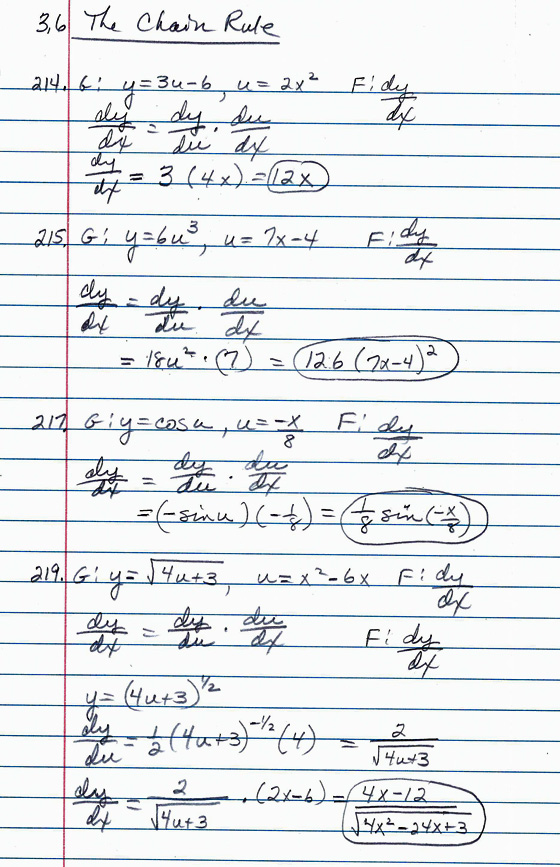 3.6 The Chain Rule
214. G: y=3u-6, u= 2x² F: dy/dx
dy/dx = dy/du · du/dx
dy/dx = 3 (4x) = 12x
215. G: y=6u³, u= 7x-4 F: dy/dx
dy/dx = dy/du · du/dx
= 18u² · (7) = 126 (7x-4)²
217. G: y=cosu, u= -x/8 F: dy/dx
dy/dx = dy/du · du/dx
= (-sinu) (-1/8) = 1/8 sin(-x/8)
219. G: y= √(4u+3), u= x²-6x F: dy/dx
dy/dx = dy/du · du/dx F: dy/dx
y= (4u+3)^1/2
dy/du = 1/2 (4u+3)^-1/2 (4) = 2/√(4u+3)
dy/dx = 2/√(4u+3) · (2x-6) = 4x-12/√(4x²-24x+3)